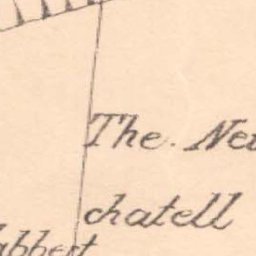 The. Neu
chatell
abbert